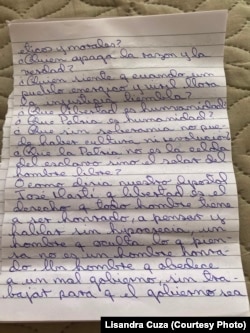 ticos y morales?
¿Quien apaga la razon y la
verdad?
¿Quien siente q cuando un
pueblo energico y viril llora
la injusticia tiembla?
¿Que libertad es humanidad?
¿Que Patria es humanidad?
¿Que sin soberania no pue-
de haber
¿Que la Patria no es la celda
del esclavo sino el solar del
hombre libre?
O como diria nuestro Apostol
Jose Marti "La libertad es el
derecho q todo hombre tiene
a ser honrado, a pensar y
hablar sin hipocresia, un
hombre q oculta lo q pien-
sa no es un hombre honra-
do. Un hombre q obedece
a un mal gobierno, sin tra-
bajar para q el gobierno sea
Lisandra Cuza (Courtesy Photo)